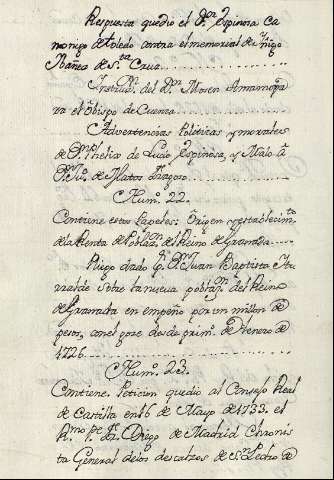 Respuesta que dio el Dor. Espinosa Ca
nonigo de Toledo contra el memorial de Yñigo
Ibañez de Sta. Cruz
Instruc.n del Dor. Mosen
ra el Obispo de Cuenca
Advertencias Politicas y morales
de Dn. Phelix de Lucio Espinosa, y Malo â
Dn. Ju.o de Matos Fragoso
Num.o 22.
Contiene estos Papeles: Origen y establecim.to
de la Renta de Poblaz.n del Reino de Granada
Pliego dado p.r Dn. Juan Baptista Itu
rralde sobre la nueva poblaz.n del Reino
de Granada en empeño por un millon de
pesos, con el goze desde prim.o de Henero de
1726
Num.o 23.
Contiene. Peticion que dio al Consejo Real
de Castilla en 16 de Mayo de 1733. el
R.mo P.e Fr. Diego de Madrid Chronis
ta General de los descalzos de Sn. Pedro de